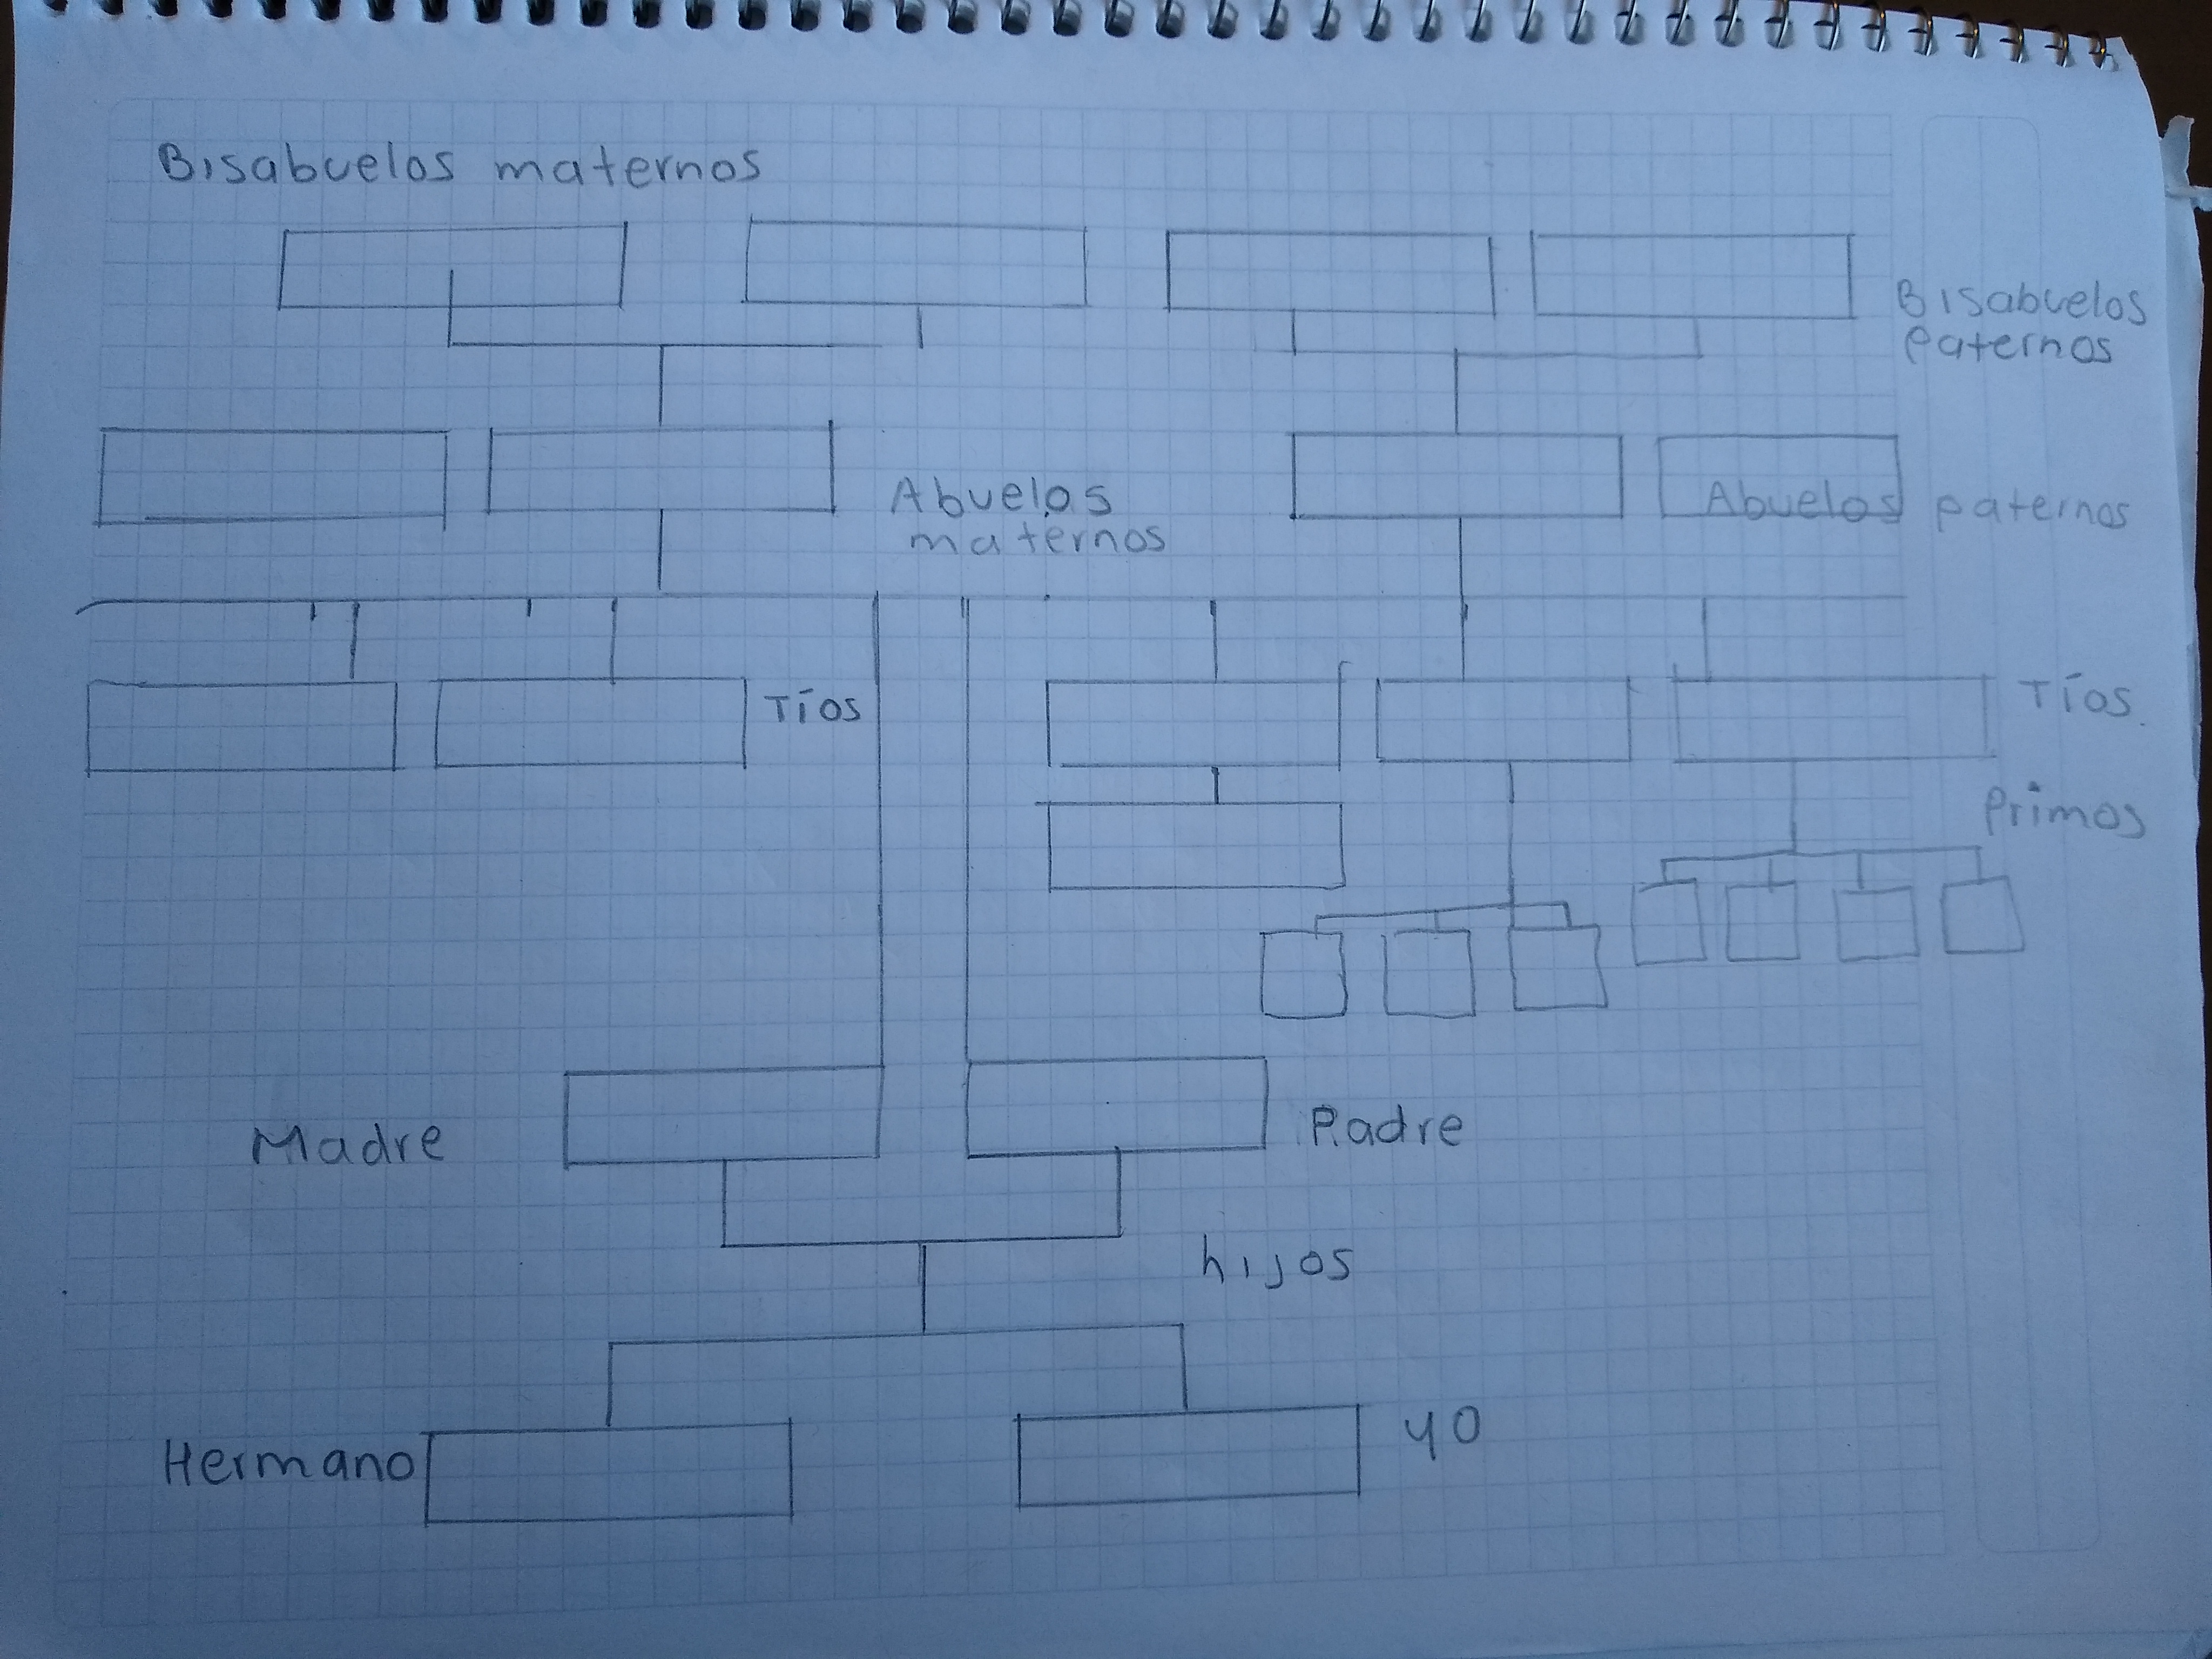 Bisabuelos maternos
Bisabuelos
paternos
Abuelos
maternos
Abuelos paternos
Tíos
Tíos.
Primos
Madre
Padre
hijos
Hermano
yo